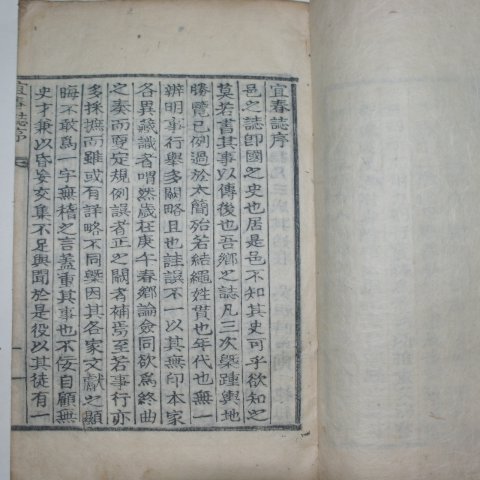 宜春誌序
邑之誌即國之史也居是邑不知其史可乎欲知之
莫若書其事以傳後也吾鄉之誌凡三次槩踵輿地
勝覽已例過於太簡殆若結繩姓貫也年代也無一
辨明事行舉多闕略且也註誤不一以其無印本家
各異藏識者喟然歲在庚午春鄉論僉同欲爲終曲
之奏而更定規例誤者正之闕者補焉至若事行亦
多採摭而雖或有詳略不同槩因其各家文獻之顯
晦不敢爲一字無稽之言蓋重其事也不佞自顧無
史才兼以昏妄交集不足與聞於是役以其徒有一
宜春誌序
一